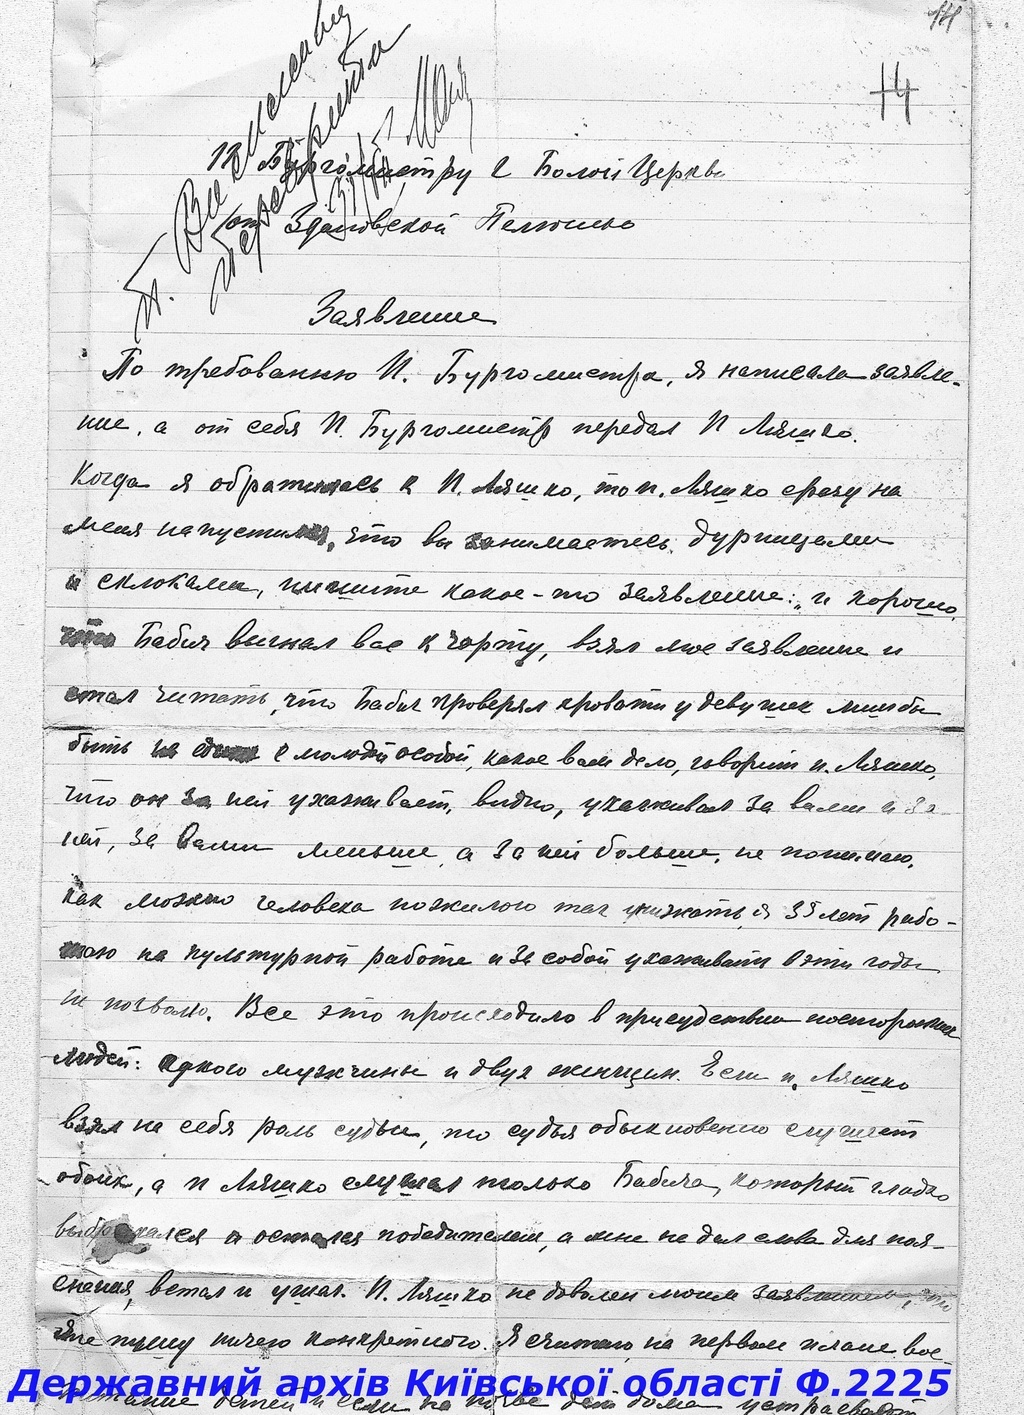 14
14
П. Бургомистру г Белой Церкви
от Здановской
Заявление
По требованию П. Бургомистра, я написала заявле-
ние, а от себя П. Бургомистр передал П Ляшко.
Когда я обратилась к П. Ляшко, то п. Ляшко сразу на
меня напустился, что вы занимаетесь дурницами
и склоками, пишите какое-то заявление: „и хорошо,
что Бабич выгнал вас к чорту, взял мое заявление и
стал читать, что Бабич проверял кровати у девушек лишь бы
быть с молодой особой, какое вам дело, говорит п. Ляшко,
что он за ней ухаживает, видно, ухаживал за вами и за
ней, за вами меньше, а за ней больше, не понимаю,
как можно человека пожилого так унижать, я 35 лет рабо-
таю на культурной работе и за собой ухаживать в эти годы
не позволю. Все это происходило в присудствии посторонних
людей: одного мужчины и двух женщин. Если п. Ляшко
взял на себя роль судьи, то судья обыкновенно слушает
обоих, а п Ляшко слушал только Бабича, который гладко
выбрехался и остался победителем, а мне не дал слова для поя-
снения, встал и ушел. П. Ляшко не доволен моим заявлением, что
я не пишу ничего конкретного. Я считаю, на первом плане вос-
питание детей и если на почве дет дома устраевают
Державний архів Київської області Ф.2225